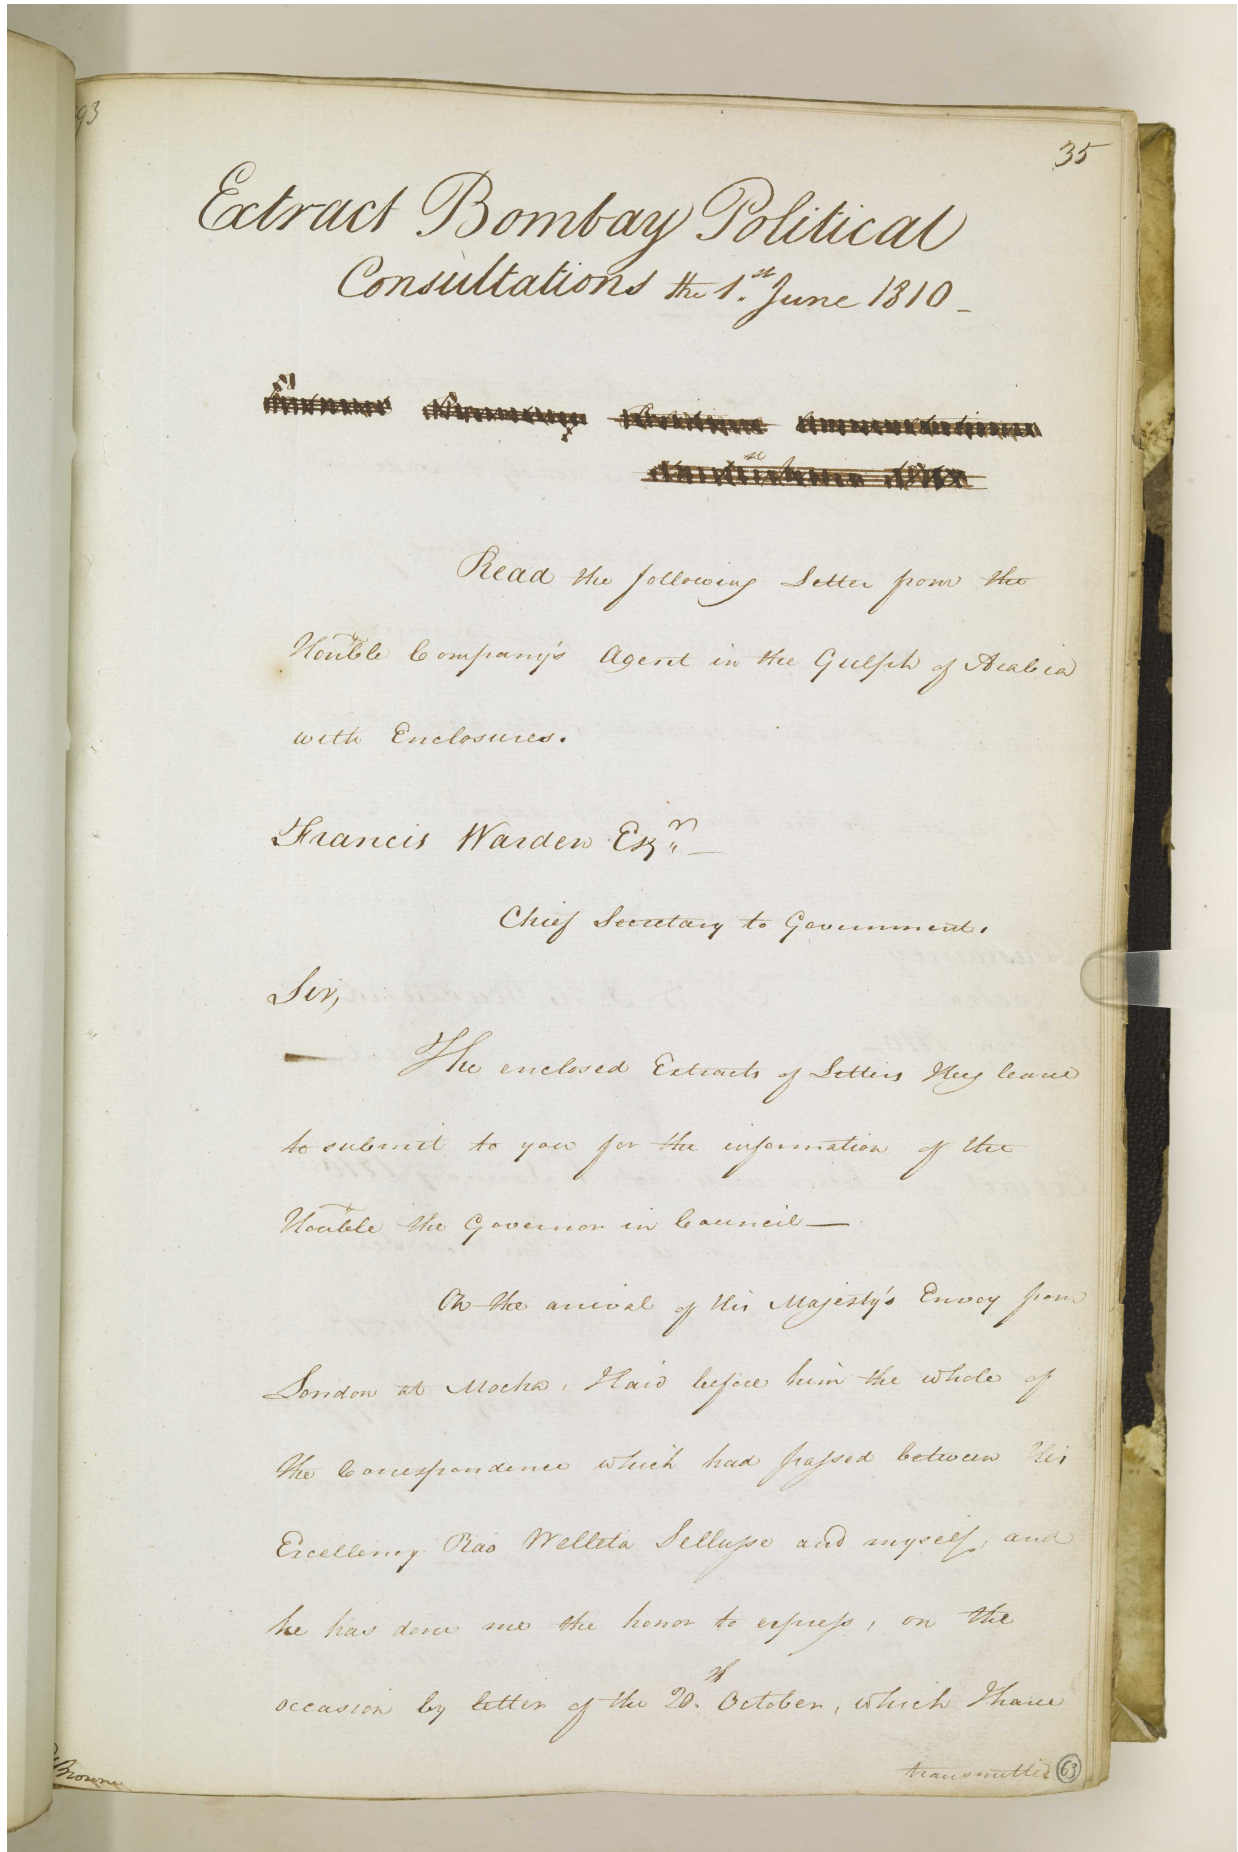 93
35
Extract Bombay Political
Consultations the 1.st June 1810 _
Read the following Letter from the
Honble Company's Agent in the Gulph of Arabia
with Enclosures.
Francis Warden Esqr. _
Chief Secretary to Government.
Sir,
The enclosed Extracts of Letters I beg leave
to submit to you for the information of the
Honble the Governor in Council —
On the arrival of His Majesty's Envoy from
London at Mocha, I laid before him the whole of
the Correspondence which had passed between His
Excellency Ras Welleta Sellasse and myself, and
he has done me the honor to express, on the
occasion by letter of the 20.th October, which I have
transmitted
63
Browne